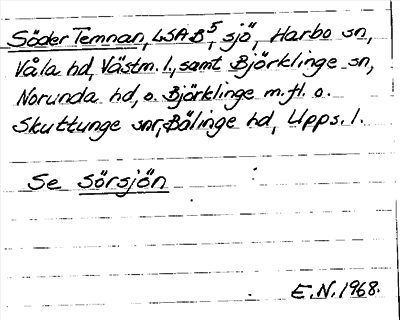 Söder Temnan, LSA B⁵, sjö, Harbo sn,
Våla hd, Västm. l., samt Björklinge sn,
Norunda hd, o. Björklinge m. fl. o.
Skuttunge snr, Bälinge hd, Upps. l.
Se Sörsjön
E.N. 1968.